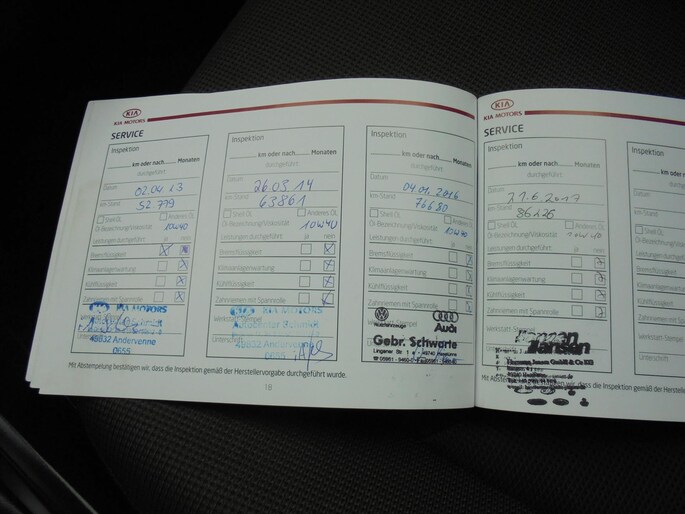 KIA
KIA MOTORS
SERVICE
Inspektion
km oder nach...... Monaten
durchgeführt
Datum
02.04.13
km-Stand
52.779
Shell Öl Anderes Öl
Öl-Bezeichnung/Viskosität
10W40
Leistungen durchgeführt: ja nein
Bremsflüssigkeit
Klimaanlagenwartung
Kühlflüssigkeit
Zahnriemen mit Spannrolle
KIA MOTORS
49832 Andervenne
0655
Inspektion
km oder nach...... Monaten
durchgeführt
Datum
26.03.14
km-Stand
63861
Shell Öl Anderes Öl
Öl-Bezeichnung/Viskosität
10W40
Leistungen durchgeführt: ja nein
Bremsflüssigkeit
Klimaanlagenwartung
Kühlflüssigkeit
Zahnriemen mit Spannrolle
KIA MOTORS
49832 Andervenne
0655
Unterschrift
Inspektion
km oder nach...... Monaten
durchgeführt
Datum
04.01.2016
km-Stand
76680
Shell Öl Anderes Öl
Öl-Bezeichnung/Viskosität
10W40
Leistungen durchgeführt: ja nein
Bremsflüssigkeit
Klimaanlagenwartung
Kühlflüssigkeit
Zahnriemen mit Spannrolle
Nutzfahrzeuge
Audi
Gebr. Schwarte
Mit Abstempelung bestätigen wir, dass die Inspektion gemäß der Herstellervorgabe durchgeführt wurde.
18
KIA
KIA MOTORS
SERVICE
Inspektion
km oder nach...... Monaten
durchgeführt
Datum
27.6.2017
km-Stand
86226
Shell Öl Anderes Öl
Öl-Bezeichnung/Viskosität
Leistungen durchgeführt: ja nein
Bremsflüssigkeit
Klimaanlagenwartung
Kühlflüssigkeit
Zahnriemen mit Spannrolle
Werkstatt-Stempel
Janzen GmbH & Co KG
Inspektion
durchgeführt
Datum
km-Stand
Shell Öl
Öl-Bezeichnung
Leistungen durchgeführt
Bremsflüssigkeit
Klimaanlagenwartung
Kühlflüssigkeit
Zahnriemen mit
Werkstatt-Stempel
Unterschrift
Mit Abstempelung bestätigen wir, dass die Inspektion gemäß der Herstellervorgabe